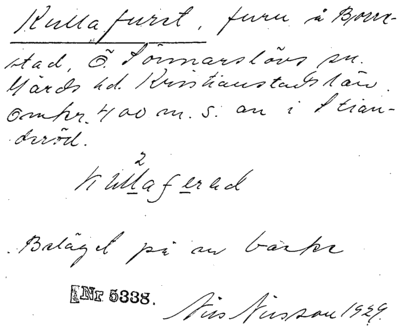 Kullafurst, furu å Bonn-
stad, Ö. Sönnarslövs sn.
Gärds hd. Kristianstads län.
Omkr. 400 m. S. om i Stian-
deröd.
2
kullaferad
Beläget på en backe
Nr 5338.
Nils Nilsson 1929.